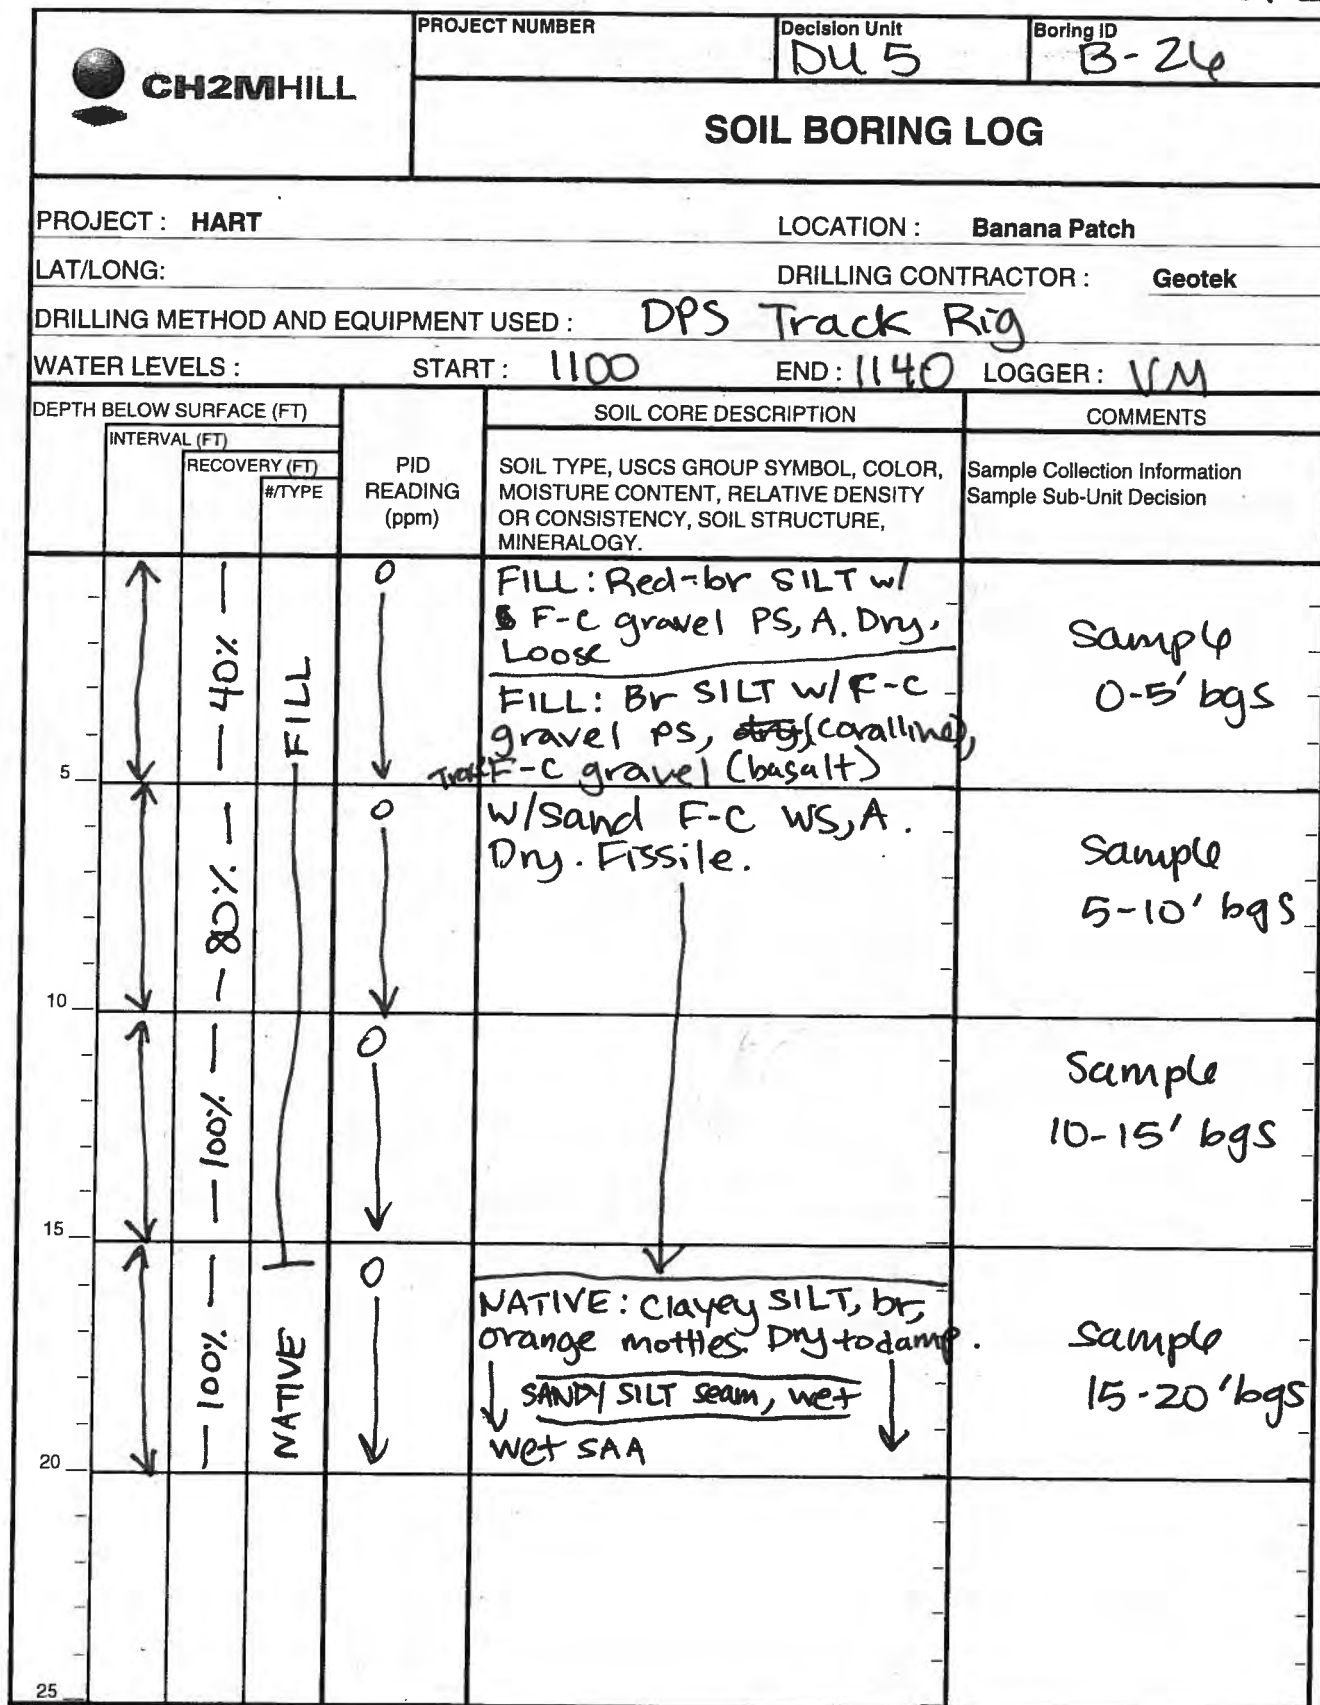 CH2MHILL
PROJECT NUMBER
Decision Unit
DU 5
Boring ID
B-26
SOIL BORING LOG
PROJECT : HART
LOCATION : Banana Patch
LAT/LONG:
DRILLING CONTRACTOR : Geotek
DRILLING METHOD AND EQUIPMENT USED : DPS Track Rig
WATER LEVELS : START : 1100 END : 1140 LOGGER : VM
DEPTH BELOW SURFACE (FT)
INTERVAL (FT)
RECOVERY (FT)
#/TYPE
PID
READING
(ppm)
SOIL CORE DESCRIPTION
SOIL TYPE, USCS GROUP SYMBOL, COLOR,
MOISTURE CONTENT, RELATIVE DENSITY
OR CONSISTENCY, SOIL STRUCTURE,
MINERALOGY.
COMMENTS
Sample Collection Information
Sample Sub-Unit Decision
40%
FILL
0
FILL: Red-br SILT w/
F-C gravel PS, A. Dry.
Loose
FILL: Br SILT w/ F-C
gravel PS, dry (coralline),
Trace F-C gravel (basalt)
Sample
0-5' bgs
5
80%
0
W/Sand F-C WS, A.
Dry. Fissile.
Sample
5-10' bgs
10
100%
0
Sample
10-15' bgs
15
100%
NATIVE
0
NATIVE: Clayey SILT, br,
orange mottles. Dry to damp.
SANDY SILT seam, wet
wet SAA
Sample
15-20' bgs
20
25